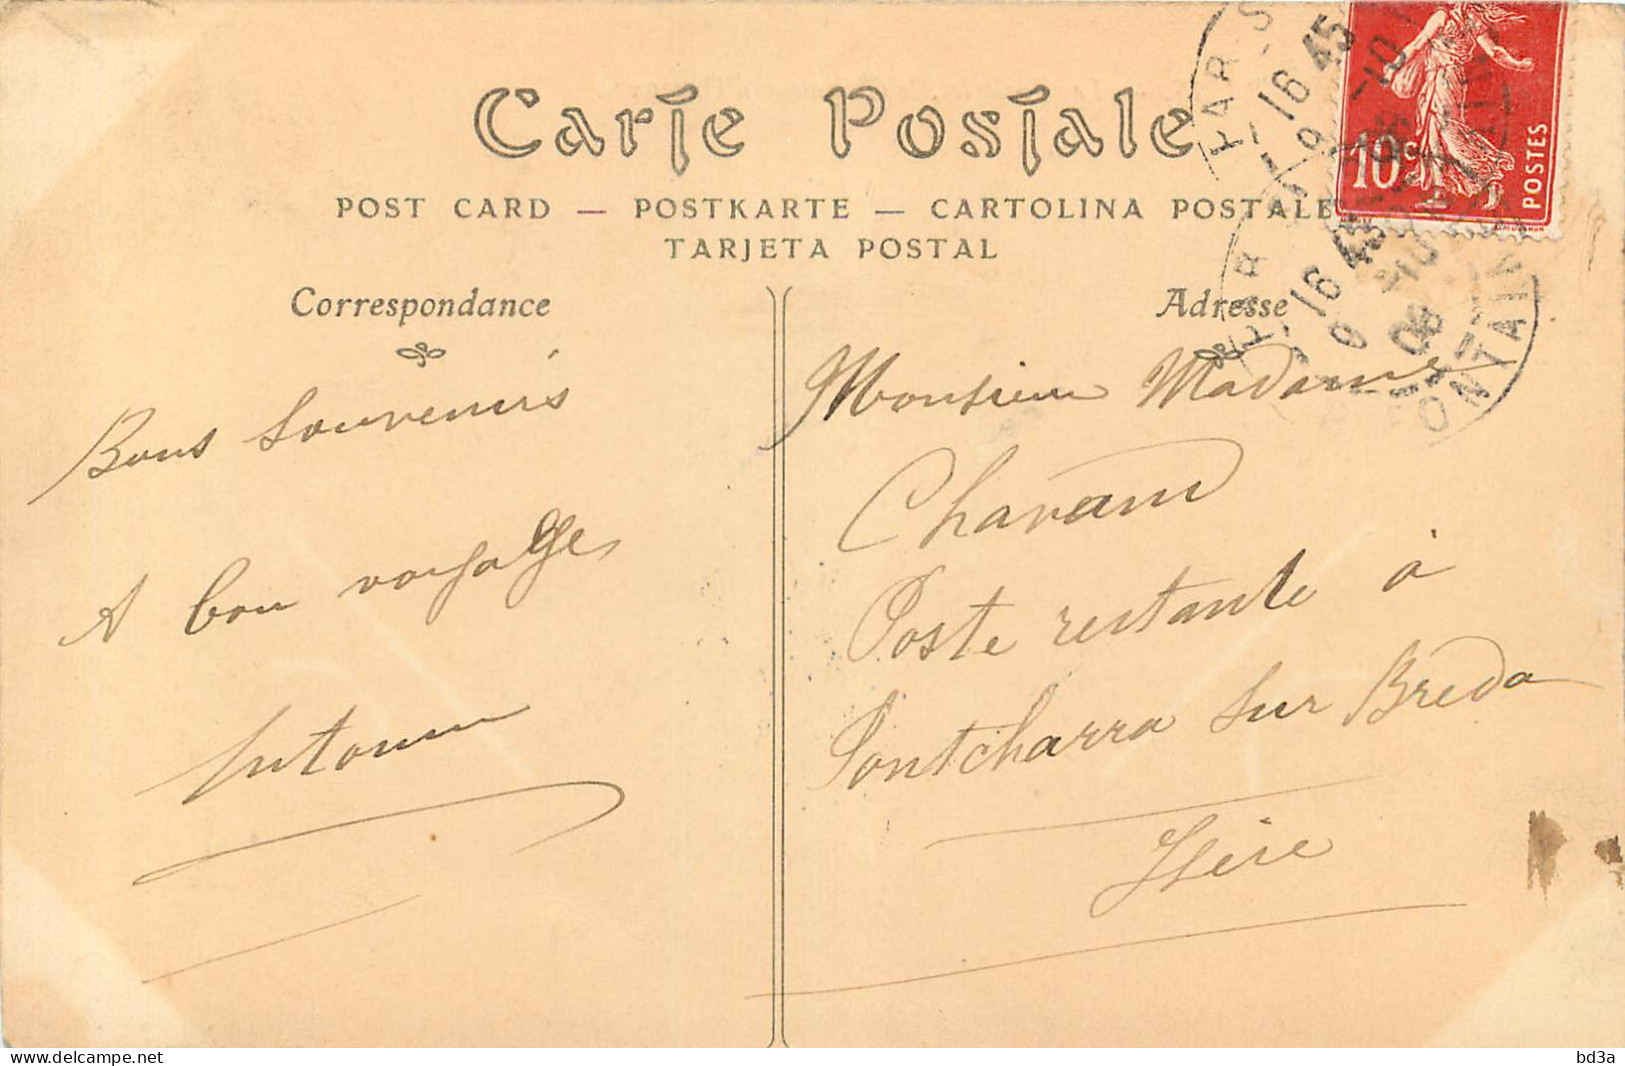 Carte Postale
POST CARD — POSTKARTE — CARTOLINA POSTALE
TARJETA POSTAL
Correspondance
Bons souvenirs
A bon voyage
Adresse
Monsieur Madame
Poste restante à
Pontcharra sur Breda
Isère
10c
POSTES
16 45
9 -10
16 45
9 -10
08
www.delcampe.net
bd3a